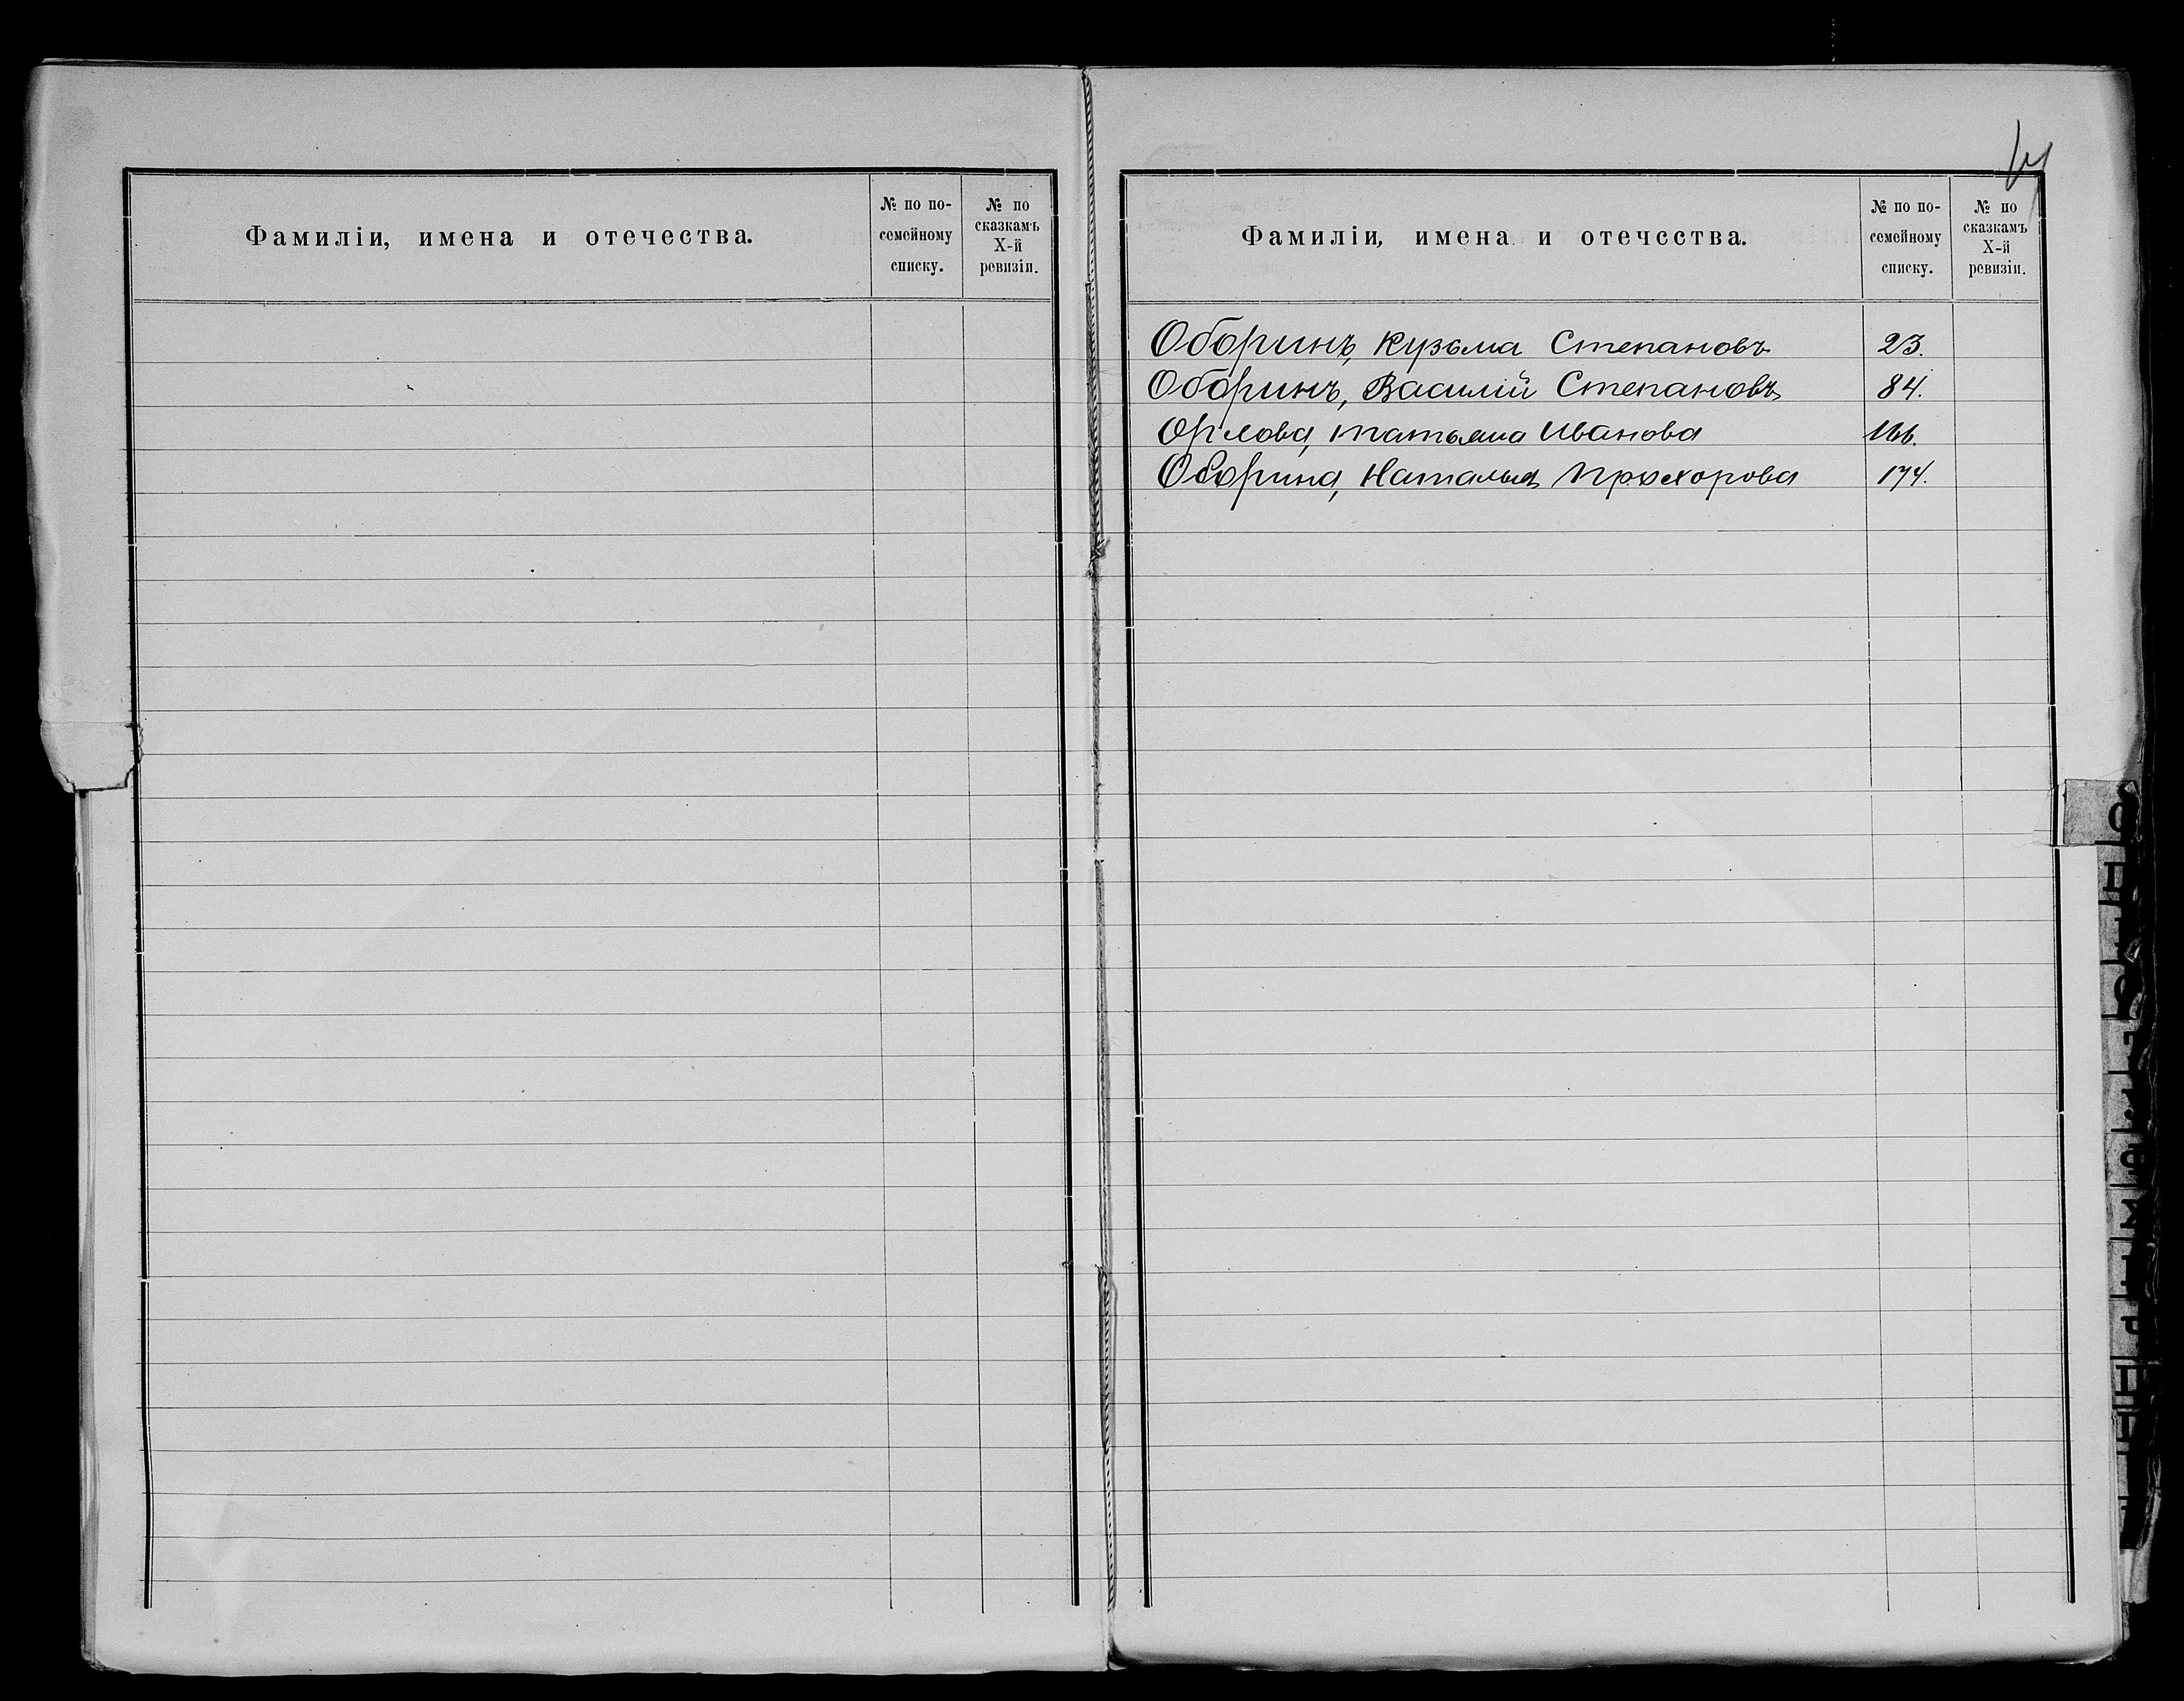 Фамиліи, имена и отечества.
№ по по-
семейному
списку.
№ по
сказкамъ
X-й
ревизіи.
Фамиліи, имена и отечества.
№ по по-
семейному
списку.
№ по
сказкамъ
X-й
ревизіи.
Оборинъ, Кузьма Степановъ 23.
Оборинъ, Василій Степановъ 84.
Орлова, Татьяна Иванова 166.
Оборина, Наталья Прохорова 174.